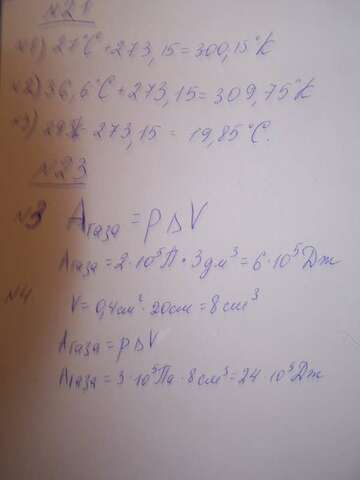 №21
№1) 27°C + 273,15 = 300,15°К
№2) 36,6°C + 273,15 = 309,75°К
№3) 293К - 273,15 = 19,85°C.
№23
№3 Aгаза = p∆V
Aгаза = 2·10⁵П · 3дм³ = 6·10⁵Дж
№4 V = 0,4см² · 20см = 8см³
Aгаза = p∆V
Aгаза = 3·10⁵Па · 8см³ = 24 10⁵Дж